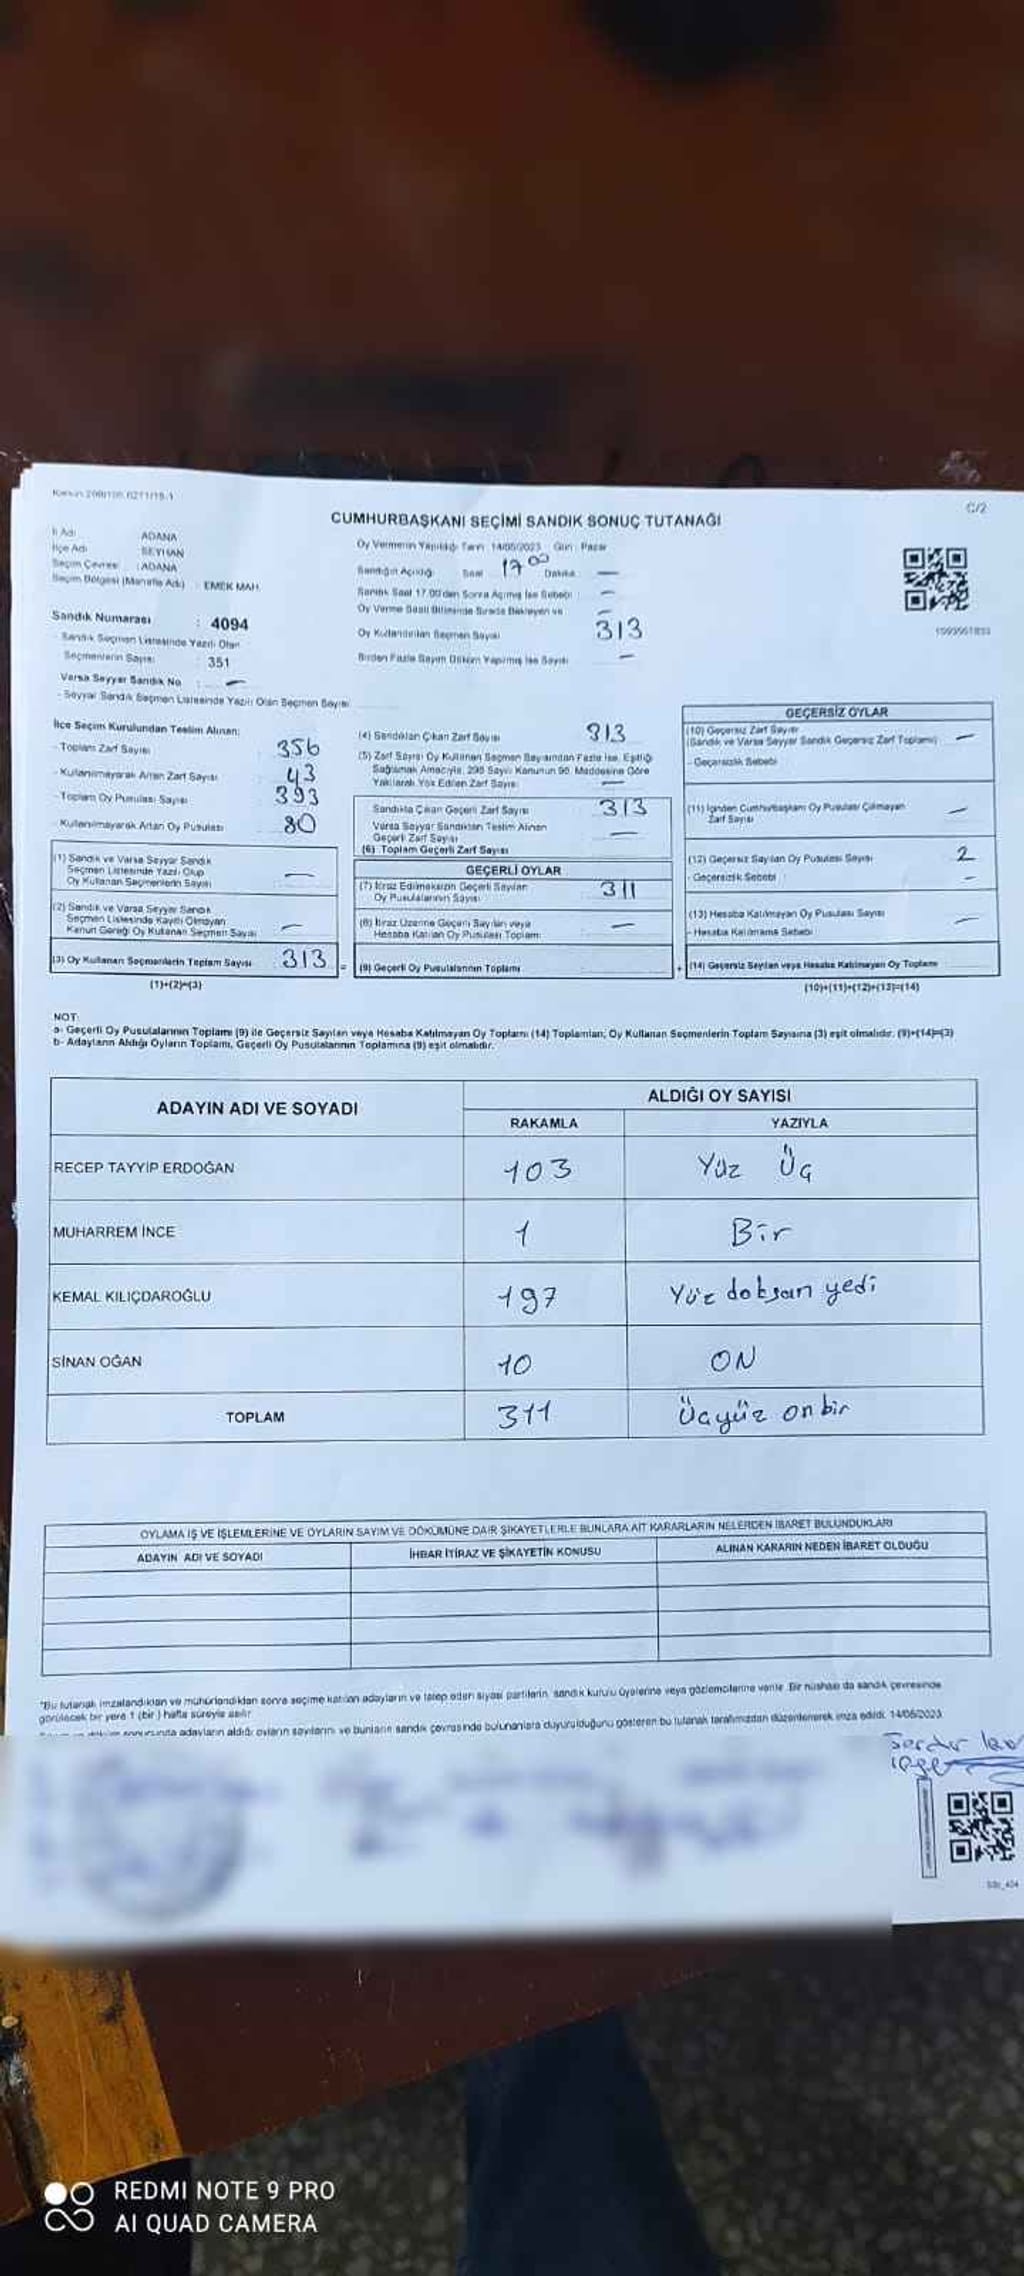 C/2
CUMHURBAŞKANI SEÇİMİ SANDIK SONUÇ TUTANAĞI
İl Adı ADANA
İlçe Adı SEYHAN
Seçim Çevresi : ADANA
Seçim Bölgesi (Mahalle Adı) : EMEK MAH.
Sandık Numarası : 4094
- Sandık Seçmen Listesinde Yazılı Olan
Seçmenlerin Sayısı : 351
Varsa Seyyar Sandık No : —
- Seyyar Sandık Seçmen Listesinde Yazılı Olan Seçmen Sayısı
Oy Vermenin Yapıldığı Tarih 14/05/2023 Gün : Pazar
Sandığın Açıldığı Saat 17 00 Dakika —
Sandık Saat 17.00'den Sonra Açılmış İse Sebebi : —
Oy Verme Saati Bitiminde Sırada Bekleyen ve —
Oy Kullandırılan Seçmen Sayısı 313
Birden Fazla Sayım Döküm Yapılmış İse Sayısı —
İlçe Seçim Kurulundan Teslim Alınan:
- Toplam Zarf Sayısı : 356
- Kullanılmayarak Artan Zarf Sayısı : 43
- Toplam Oy Pusulası Sayısı : 393
- Kullanılmayarak Artan Oy Pusulası : 80
(1) Sandık ve Varsa Seyyar Sandık
Seçmen Listesinde Yazılı Olup
Oy Kullanan Seçmenlerin Sayısı —
(2) Sandık ve Varsa Seyyar Sandık
Seçmen Listesinde Kayıtlı Olmayan
Kanun Gereği Oy Kullanan Seçmen Sayısı —
(3) Oy Kullanan Seçmenlerin Toplam Sayısı 313
(1)+(2)=(3)
(4) Sandıktan Çıkan Zarf Sayısı 313
(5) Zarf Sayısı Oy Kullanan Seçmen Sayısından Fazla İse, Eşitliği
Sağlamak Amacıyla, 298 Sayılı Kanunun 98. Maddesine Göre
Yakılarak Yok Edilen Zarf Sayısı —
Sandıkta Çıkan Geçerli Zarf Sayısı 313
Varsa Seyyar Sandıktan Teslim Alınan
Geçerli Zarf Sayısı —
(6) Toplam Geçerli Zarf Sayısı
GEÇERLİ OYLAR
(7) İtiraz Edilmeksizin Geçerli Sayılan
Oy Pusulalarının Sayısı 311
(8) İtiraz Üzerine Geçerli Sayılan veya
Hesaba Katılan Oy Pusulası Toplamı —
= (9) Geçerli Oy Pusulalarının Toplamı
GEÇERSİZ OYLAR
(10) Geçersiz Zarf Sayısı
(Sandık ve Varsa Seyyar Sandık Geçersiz Zarf Toplamı) —
- Geçersizlik Sebebi :
(11) İçinden Cumhurbaşkanı Oy Pusulası Çıkmayan
Zarf Sayısı —
(12) Geçersiz Sayılan Oy Pusulası Sayısı 2
- Geçersizlik Sebebi : —
(13) Hesaba Katılmayan Oy Pusulası Sayısı —
- Hesaba Katılmama Sebebi
+ (14) Geçersiz Sayılan veya Hesaba Katılmayan Oy Toplamı
(10)+(11)+(12)+(13)=(14)
NOT:
a- Geçerli Oy Pusulalarının Toplamı (9) ile Geçersiz Sayılan veya Hesaba Katılmayan Oy Toplamı (14) Toplamları, Oy Kullanan Seçmenlerin Toplam Sayısına (3) eşit olmalıdır. (9)+(14)=(3)
b- Adayların Aldığı Oyların Toplamı, Geçerli Oy Pusulalarının Toplamına (9) eşit olmalıdır.
ADAYIN ADI VE SOYADI ALDIĞI OY SAYISI
RAKAMLA YAZIYLA
RECEP TAYYİP ERDOĞAN 103 Yüz Üç
MUHARREM İNCE 1 Bir
KEMAL KILIÇDAROĞLU 197 Yüz doksan yedi
SİNAN OĞAN 10 ON
TOPLAM 311 Üçyüz onbir
OYLAMA İŞ VE İŞLEMLERİNE VE OYLARIN SAYIM VE DÖKÜMÜNE DAİR ŞİKAYETLERLE BUNLARA AİT KARARLARIN NELERDEN İBARET BULUNDUKLARI
ADAYIN ADI VE SOYADI İHBAR İTİRAZ VE ŞİKAYETİN KONUSU ALINAN KARARIN NEDEN İBARET OLDUĞU
*Bu tutanak imzalandıktan ve mühürlendikten sonra seçime katılan adayların ve talep eden siyasi partilerin, sandık kurulu üyelerine veya gözlemcilerine verilir. Bir nüshası da sandık çevresinde
görülecek bir yere 1 (bir) hafta süreyle asılır.
sonucunda adayların aldığı oyların sayılarını ve bunların sandık çevresinde bulunanlara duyurulduğunu gösteren bu tutanak tarafımızdan düzenlenerek imza edildi. 14/05/2023
REDMI NOTE 9 PRO
AI QUAD CAMERA